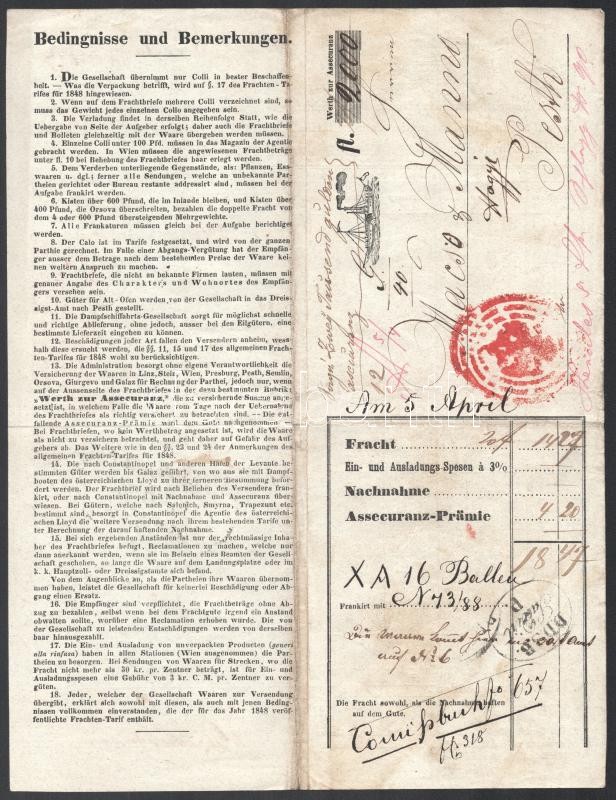 Bedingnisse und Bemerkungen.
1. Die Gesellschaft übernimmt nur Colli in bester Beschaffen-
heit. — Was die Verpackung betrifft, wird auf §. 17 des Frachten-Ta-
rifes für 1848 hingewiesen.
2. Wenn auf dem Frachtbriefe mehrere Colli verzeichnet sind, so
muss das Gewicht jedes einzelnen Collo angegeben sein.
3. Die Verladung findet in derselben Reihenfolge Statt, wie die
Uebergabe von Seite der Aufgeber erfolgt; daher auch die Frachtbriefe
und Bolleten gleichzeitig mit der Waare übergeben werden müssen.
4. Einzelne Colli unter 100 Pfd. müssen in das Magazin der Agentie
gebracht werden. In Wien müssen die angewiesenen Frachtbeträge
unter fl. 10 bei Behebung des Frachtbriefes baar erlegt werden.
5. Dem Verderben unterliegende Gegenstände, als: Pflanzen, Ess-
waaren u. dgl.; ferner alle Sendungen, welche an unbekannte Par-
theien gerichtet oder Bureau restante addressirt sind, müssen bei der
Aufgabe frankirt werden.
6. Kisten über 600 Pfund, die im Inlande bleiben, und Kisten über
400 Pfund, die Orsova überschreiten, bezahlen die doppelte Fracht von
dem 4 oder 600 Pfund übersteigenden Mehrgewichte.
7. Alle Frankaturen müssen gleich bei der Aufgabe berichtiget
werden.
8. Der Calo ist im Tarife festgesetzt, und wird von der ganzen
Parthie gerechnet. Im Falle einer Abgangs-Vergütung hat der Empfän-
ger ausser dem Betrage nach dem bestehenden Preise der Waare kei-
nen weitern Anspruch zu machen.
9. Frachtbriefe, die nicht an bekannte Firmen lauten, müssen mit
genauer Angabe des Charakters und Wohnortes des Empfän-
gers versehen sein.
10. Güter für Alt-Ofen werden von der Gesellschaft in das Dreis-
sigst-Amt nach Pesth gestellt.
11. Die Dampfschiffahrts-Gesellschaft sorgt für möglichst schnelle
und richtige Ablieferung, ohne jedoch, ausser bei den Eilgütern, eine
bestimmte Lieferzeit eingehen zu können.
12. Beschädigungen jeder Art fallen den Versendern anheim, wess-
halb diese ersucht werden, die §§. 11, 15 und 17 des allgemeinen Frach-
ten-Tarifes für 1848 wohl zu berücksichtigen.
13. Die Administration besorgt ohne eigene Verantwortlichkeit die
Versicherung der Waaren in Linz, Stein, Wien, Presburg, Pesth, Semlin,
Orsova, Giurgevo und Galaz für Rechnung der Partheien, jedoch nur, wenn
auf der Aussenseite des Frachtbriefes in der dazu bestimmten Rubrik:
„Werth zur Assecuranz," die zu versichernde Summe ange-
setzt ist, in welchem Falle die Waare vom Tage nach der Uebernahme
des Frachtbriefes als richtig versichert zu betrachten sind. — Die ent-
fallende Assecuranz-Prämie wird dem Gute nachgenommen. — Bei
Frachtbriefen, wo kein Werthbetrag angesetzt ist, wird die Waare
als nicht zu versichern betrachtet, und geht daher auf Gefahr des Auf-
gebers ab. Das Weitere wie in den §§. 23 und 24 der Anmerkungen des
allgemeinen Frachten-Tarifes für 1848.
14. Die nach Constantinopel und anderen Häfen der Levante be-
stimmten Güter werden bis Galaz geführt, von wo aus sie mit Dampf-
booten des österreichischen Lloyd zu ihrer ferneren Bestimmung beför-
dert werden. Der Frachtbrief wird nach Belieben des Versenders fran-
kirt, oder nach Constantinopel mit Nachnahme und Assecuranz über-
wiesen. Bei Gütern, welche nach Salonich, Smyrna, Trapezunt etc.
bestimmt sind, besorgt in Constantinopel die Agentie des österreichi-
schen Lloyd die weitere Versendung nach ihrem bestehenden Tarife un-
ter Berechnung der darauf haftenden Nachnahme.
15. Bei sich ergebenden Anständen ist nur der rechtmässige Inha-
ber des Frachtbriefes befugt, Reclamationen zu machen, welche nur
dann anerkannt werden, wenn sie im Beisein eines Beamten der Gesell-
schaft geschehen, so lange die Waare auf dem Landungsplatze oder im
k. k. Hauptzoll- oder Dreissigstamte sich befand.
Von dem Augenblicke an, als die Partheien ihre Waaren übernom-
men haben, leistet die Gesellschaft für keinerlei Beschädigung oder Ab-
gang einen Ersatz.
16. Die Empfänger sind verpflichtet, die Frachtbeträge ohne Ab-
zug zu bezahlen, selbst wenn bei dem Frachtgute irgend ein Anstand
obwalten sollte, worüber eine Reclamation erhoben wurde. Die von
der Gesellschaft zu leistenden Entschädigungen werden von derselben
baar hinausgezahlt.
17. Die Ein- und Ausladung von unverpackten Producten (generi
alla rinfusa) haben in allen Stationen (Wien ausgenommen) die Par-
theien zu besorgen. Bei Sendungen von Waaren für Strecken, wo die
Fracht nicht mehr als 30 kr. pr. Zentner beträgt, ist für Ein- und
Ausladungsspesen eine Gebühr von 3 kr. C. M. pr. Zentner zu ver-
güten.
18. Jeder, welcher der Gesellschaft Waaren zur Versendung
übergibt, erklärt sich sowohl mit diesen, als auch mit jenen Beding-
nissen vollkommen einverstanden, die der für das Jahr 1848 veröf-
fentlichte Frachten-Tarif enthält.
Werth zur Assecuranz
fl. 2000
Jacob & Manno
Pesth
Am 5 April
Fracht
Ein- und Ausladungs-Spesen à 3%
Nachnahme
Assecuranz-Prämie 1 20
18 47
X A 16 Ballen
Frankirt mit
N 73/88
Die Fracht sowohl, als die Nachnahme haften
auf dem Gute.
657
318